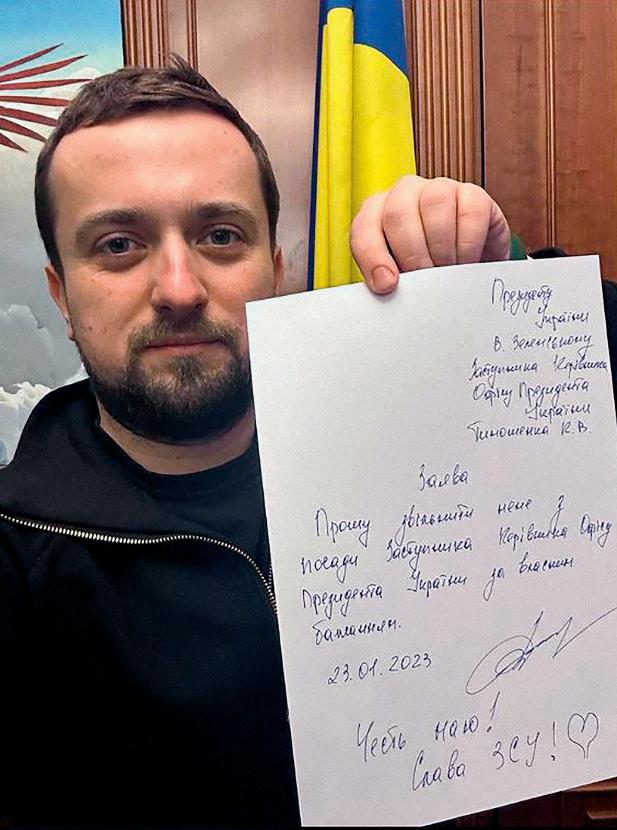 Президенту
України
В. Зеленському
Заступника Керівника
Офісу Президента
України
Тимошенка К.В.
Заява
Прошу звільнити мене з
посади Заступника Керівника Офісу
Президента України за власним
бажанням.
23.01.2023
Честь маю!
Слава ЗСУ!